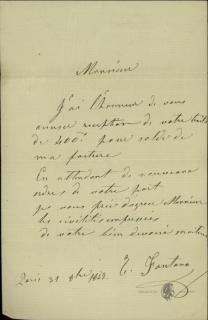 Monsieur
J'ai l'honneur de vous
reception de votre
de 400f pour solde de
ma facture
En attendant de nouveaux
ordres de votre part
je vous prie d'agréer Monsieur
les civilités
de votre bien devoué serviteur
Paris 31 1863. Fontana